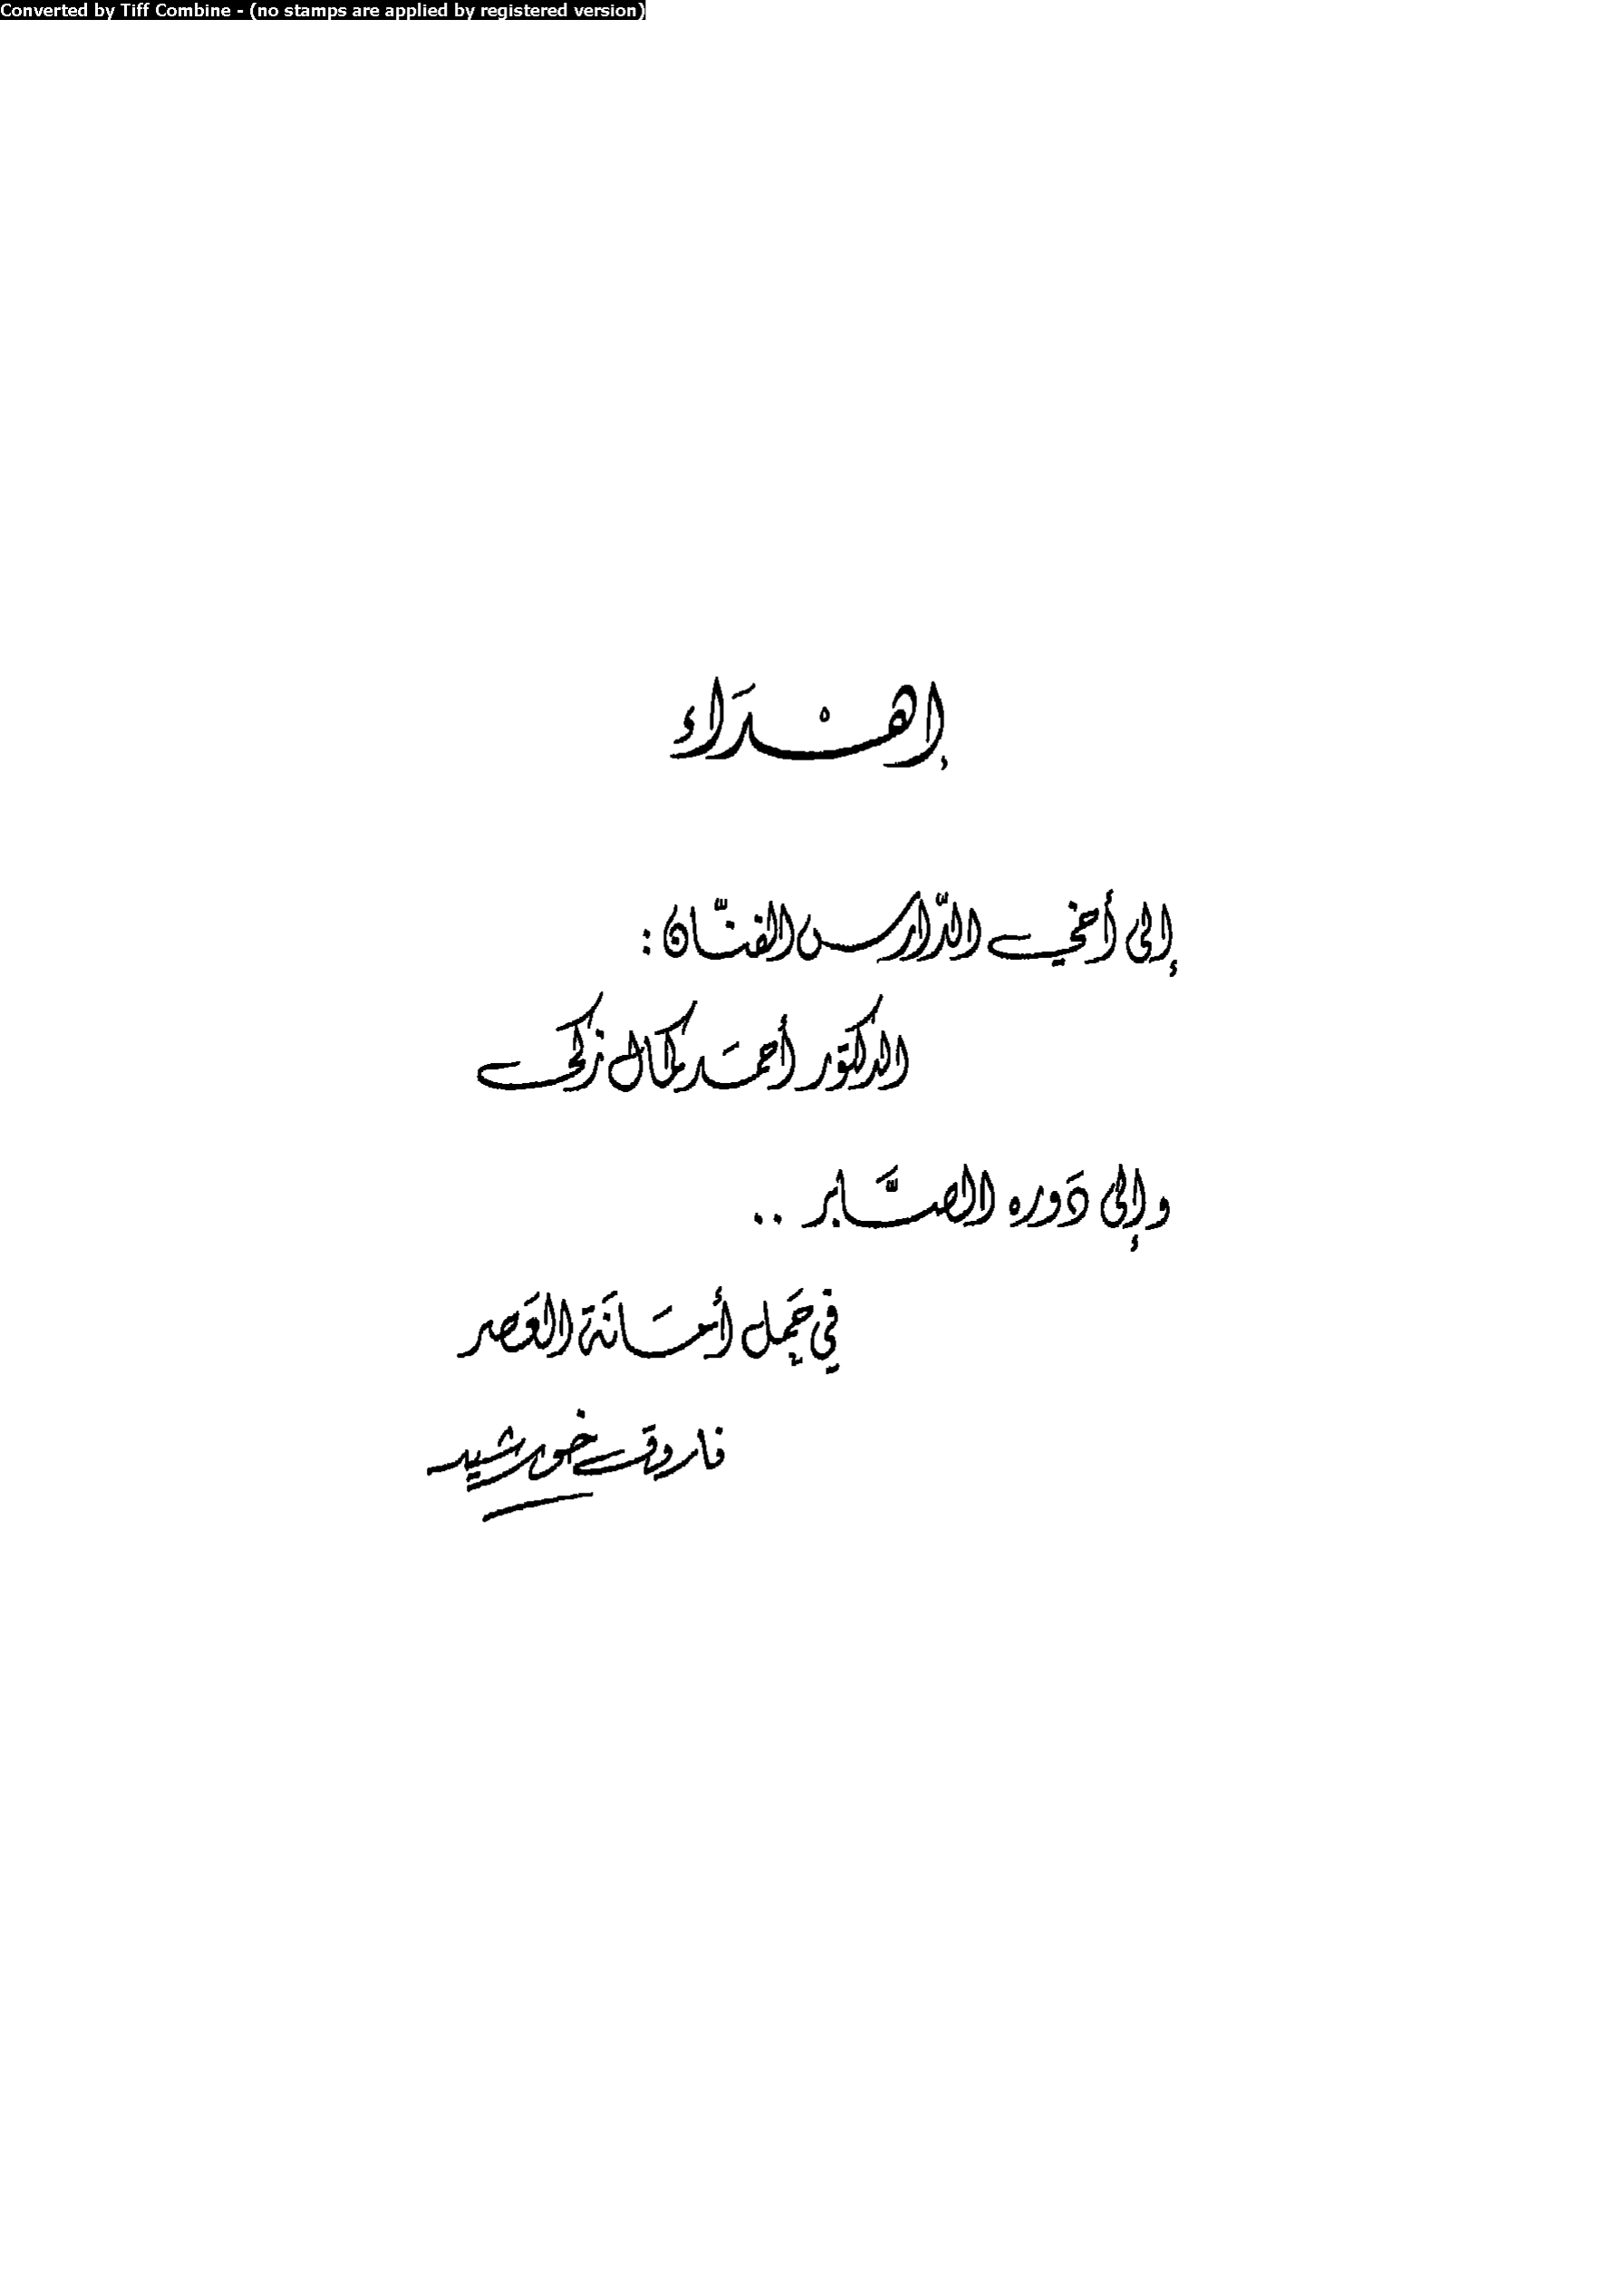 Converted by Tiff Combine - (no stamps are applied by registered version)
إهْدَاء
إلى أخي الدّارس الفنّان :
الدكتور أحمَد كمال زكى
وإلى دَوره الصَّابر ..
في حَمل أمَانَة العَصر
فاروق خورشيد